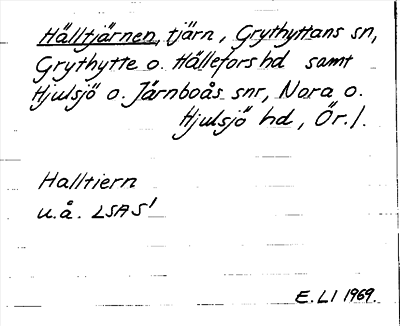 Hälltjärnen, tjärn, Grythyttans sn,
Grythytte o. Hällefors hd samt
Hjulsjö o. Järnboås snr, Nora o.
Hjulsjö hd, Ör. l.
Halltiern
u.å. LSAS'
E. LI 1969.